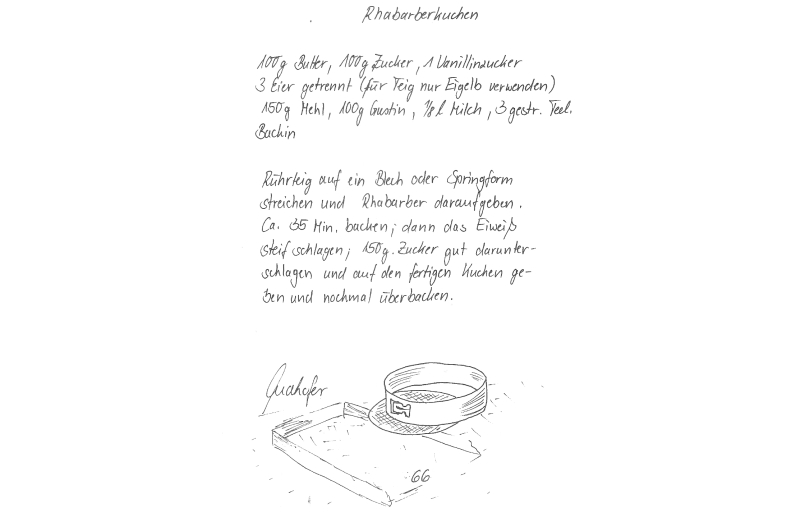 Rhabarberkuchen
100g Butter, 100g Zucker, 1 Vanillinzucker
3 Eier getrennt (für Teig nur Eigelb verwenden)
150g Mehl, 100g Gustin, 1/8 l Milch, 3 gestr. Teel.
Backin
Rührteig auf ein Blech oder Springform
streichen und Rhabarber daraufgeben.
Ca. 35 Min. backen; dann das Eiweiß
steif schlagen; 150g. Zucker gut darunter-
schlagen und auf den fertigen Kuchen ge-
ben und nochmal überbacken.
66